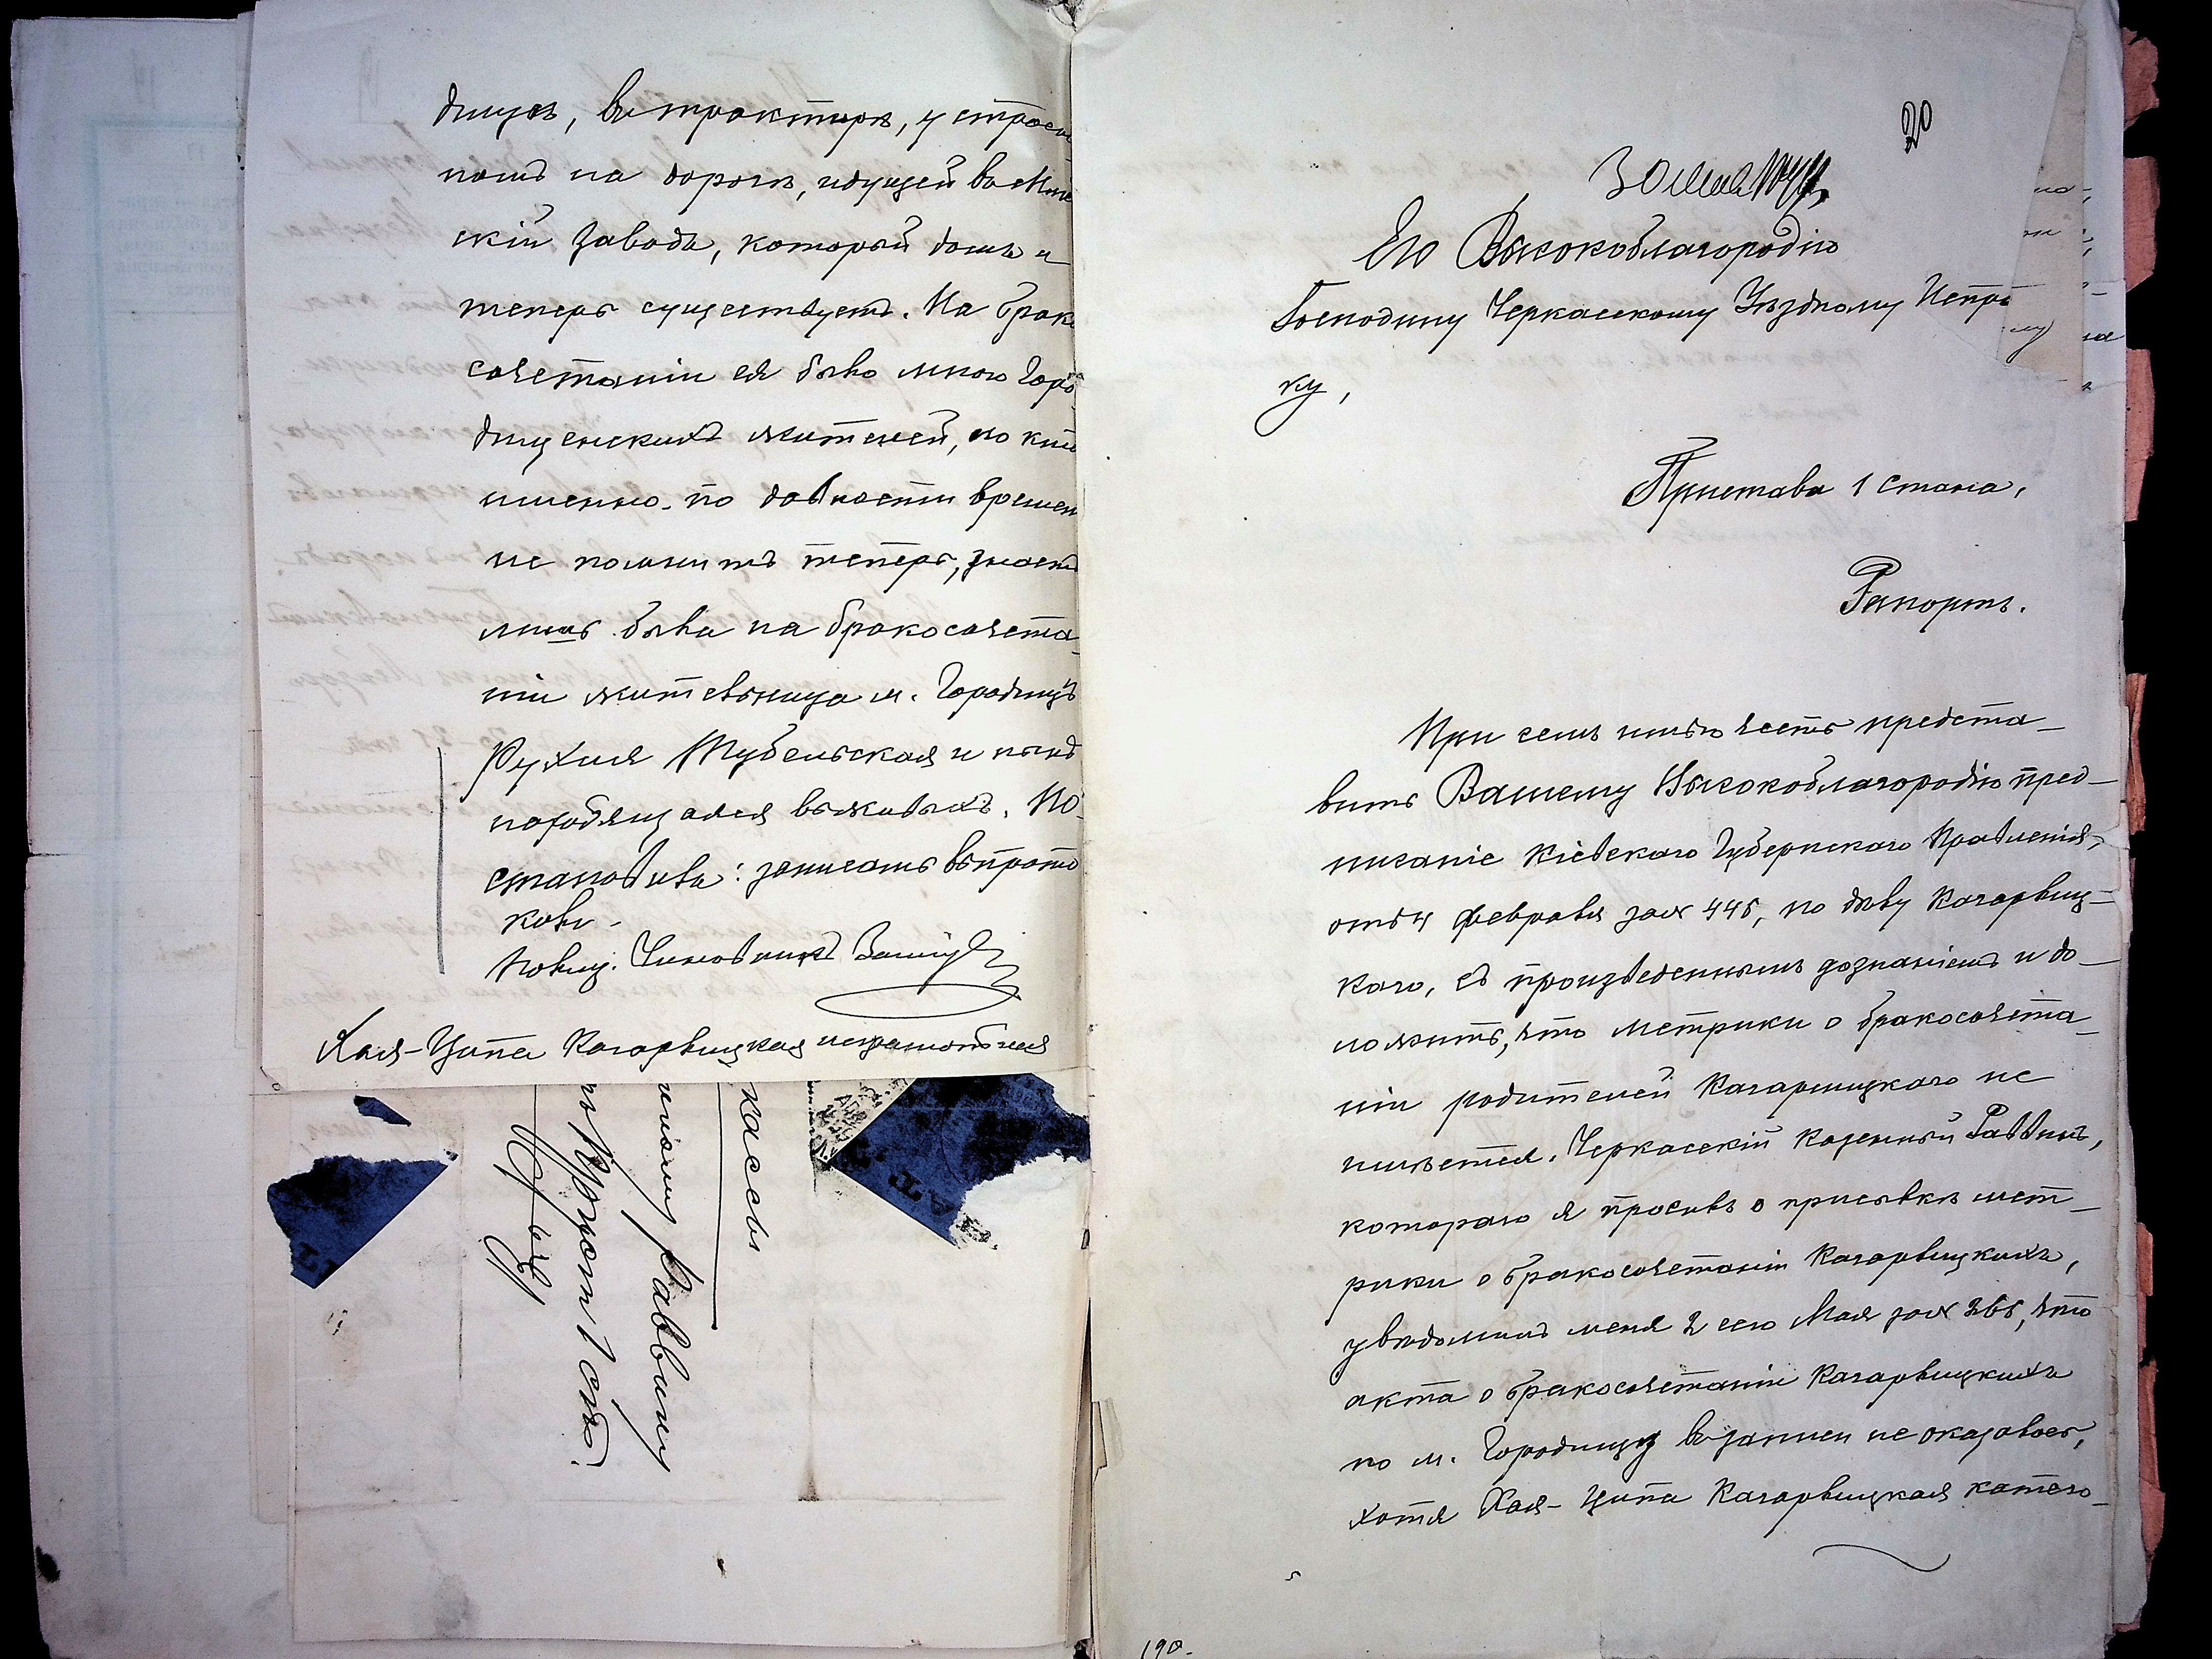 дищѣ, въ трактирѣ, у строен
номъ на дорогѣ, идущей въ Мле
скій заводъ, который домъ и
теперь существуетъ. На брако
сочетаніи ея было много Горо
дищенскихъ жителей, но кто
именно по давности времен
не помнитъ теперь, знаетъ
лишь была на бракосочета-
ніи жительница м. Городищъ
Рухля Тубельская и нынѣ
находящаяся въ живыхъ. По-
становилъ: записать въ прото
колъ.
Полиц. Чиновникъ
Хая-Ципа Кагарлицкая неграмотная
кассы
Раввину
Приставъ 1 ст.
20
30 Мая
Его Высокоблагородію
Господину Черкасскому Уѣздному Испра
ку,
Пристава 1 стана,
Рапортъ.
При семъ имѣю честь предста-
вить Вашему Высокоблагородію пред-
писаніе Кіевскаго Губернскаго Правленія,
отъ 4 февраля за № 445, по дѣлу Кагарлиц-
каго, съ произведеннымъ дознаніемъ и до-
ложить, что метрики о бракосочета-
ніи родителей Кагарлицкаго не
имѣется. Черкасскій Казенный Раввинъ,
котораго я просилъ о присылкѣ мет-
рики о бракосочетаніи Кагарлицкихъ,
увѣдомилъ меня 2 сего Мая за № 365, что
акта о бракосочетаніи Кагарлицкихъ
по м. Городищу въ записи не оказалось,
хотя Хая-Ципа Кагарлицкая катего-
190.